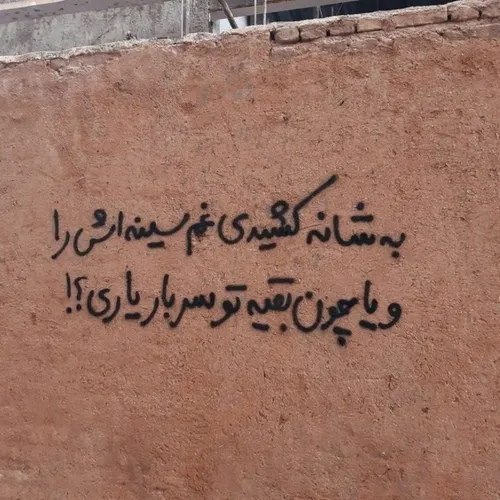 به شانه کشیدی غم سینه اش را
و یا چون بقیه تو سربار یاری؟!